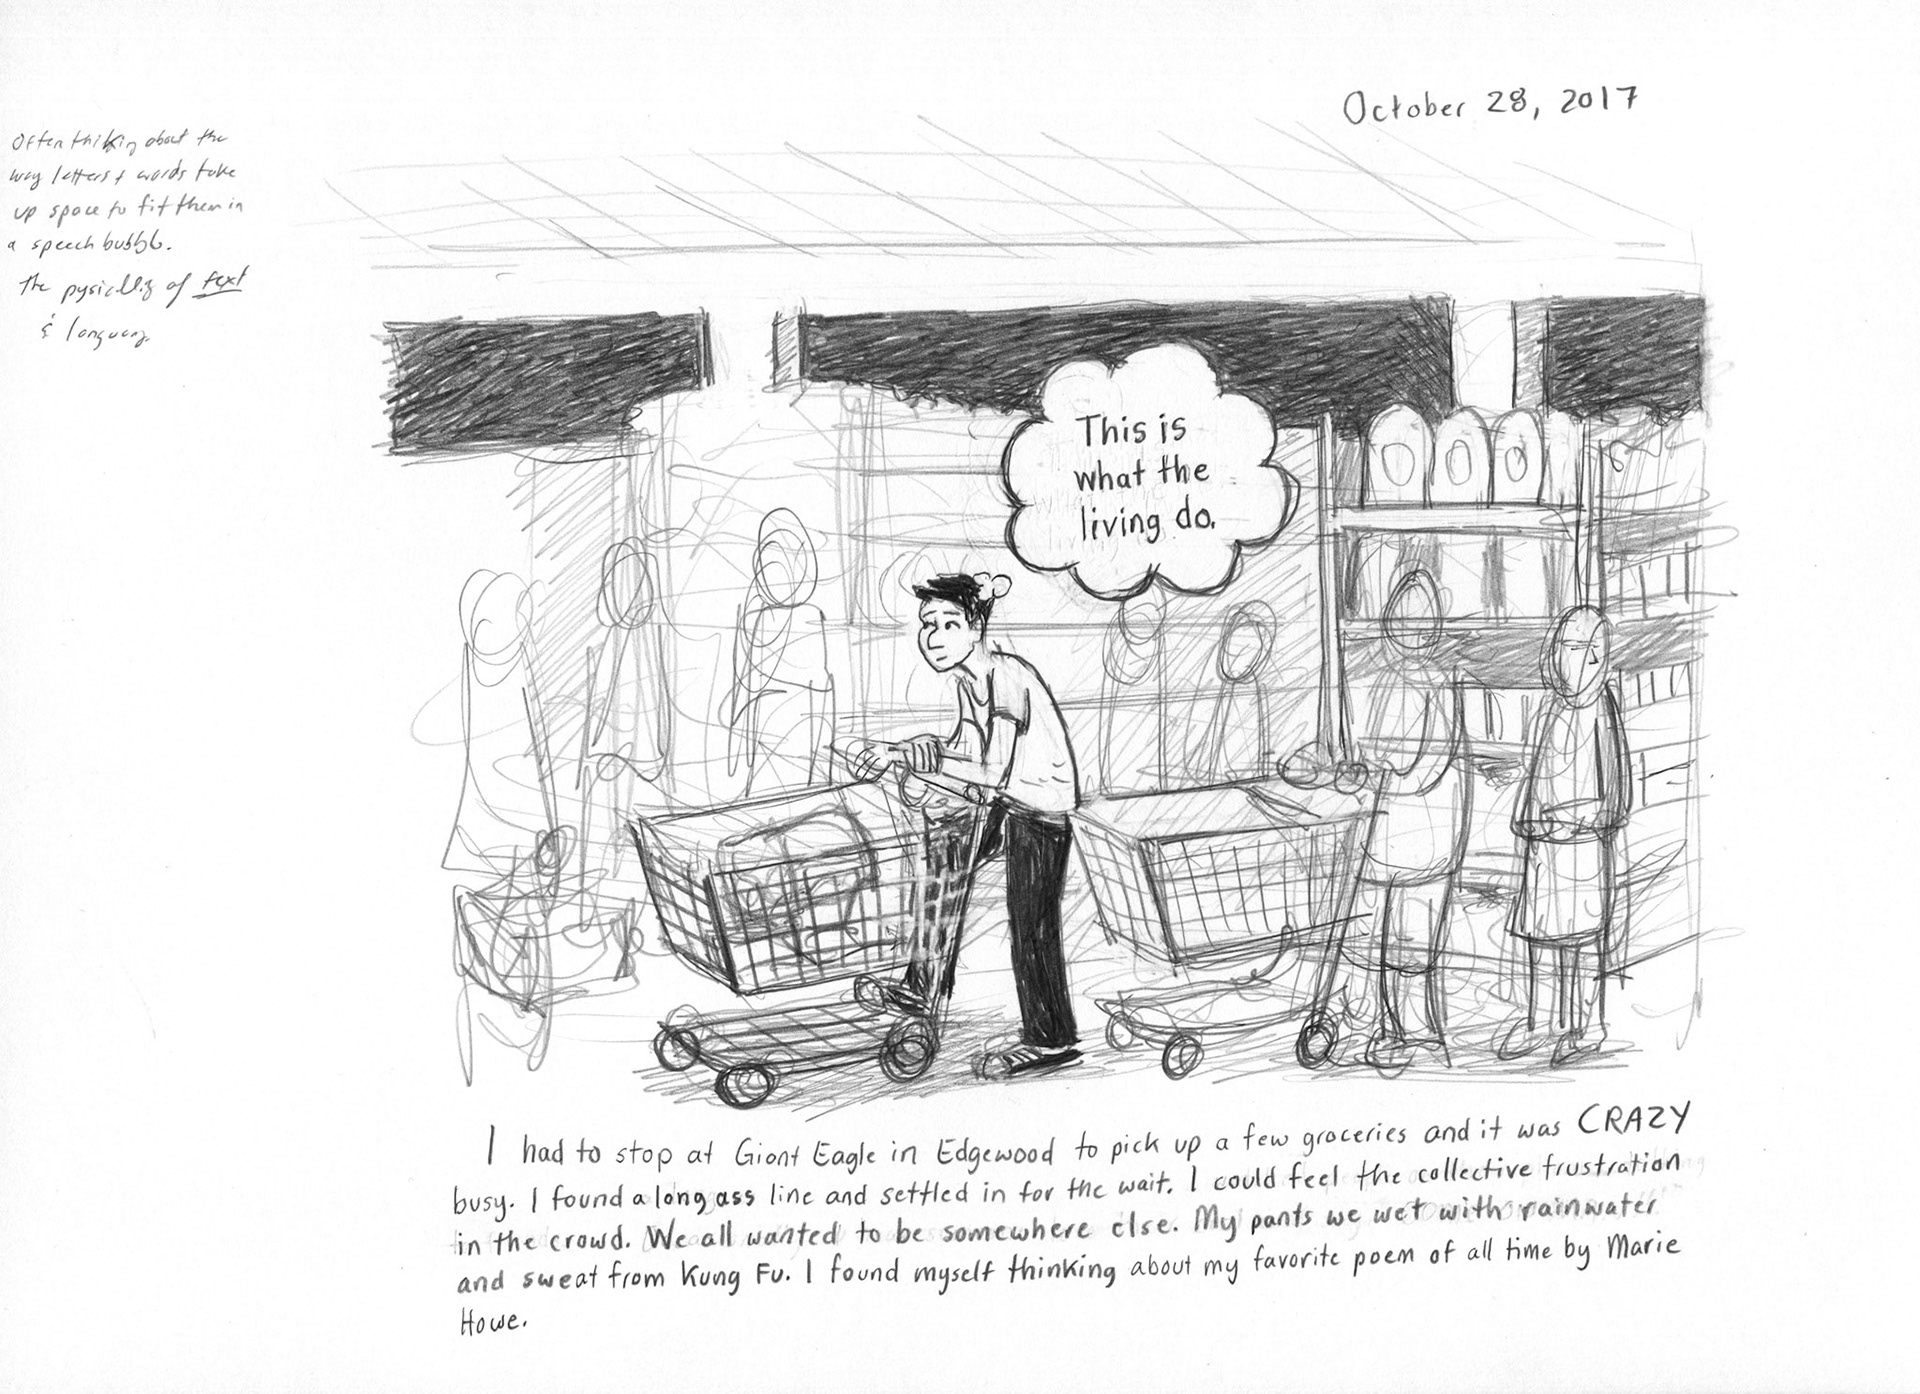 October 28, 2017
Often thinking about the
way letters & words take
up space to fit them in
a speech bubble.
The pysicllig of text
& languag
This is
what the
living do.
I had to stop at Giant Eagle in Edgewood to pick up a few groceries and it was CRAZY
busy. I found a long ass line and settled in for the wait. I could feel the collective frustration
in the crowd. We all wanted to be somewhere else. My pants we wet with rainwater
and sweat from Kung Fu. I found myself thinking about my favorite poem of all time by Marie
Howe.